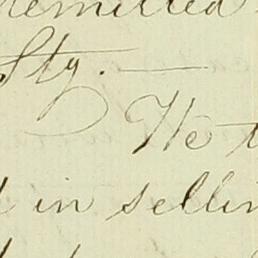 remitted
Stg. —
We t
in sellin